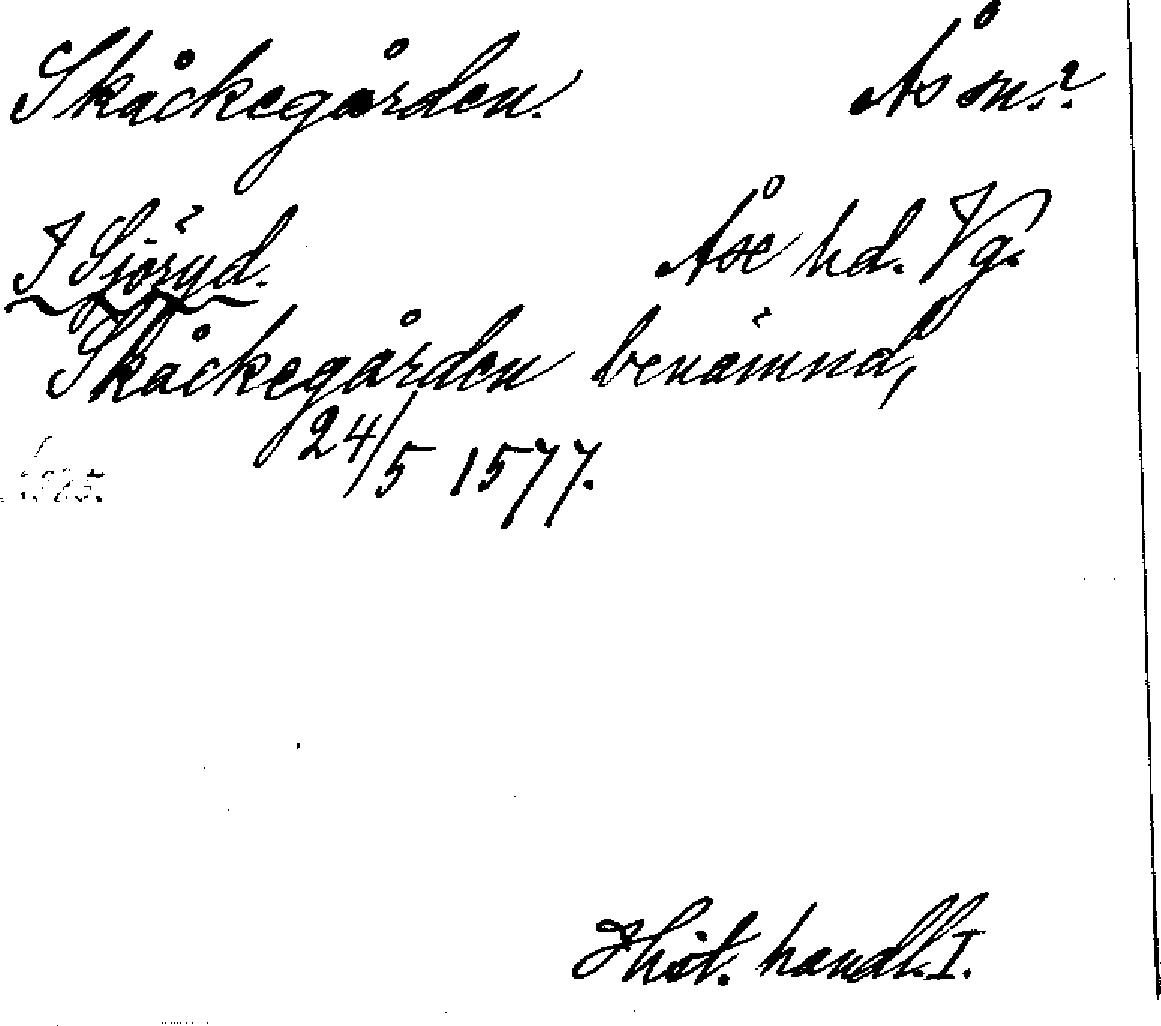 Skåckegården. Ås sn.?
I Sjöryd. Åse hd. Vg.
Skåckegården benämnd,
24/5 1577.
Hist. handl. I.